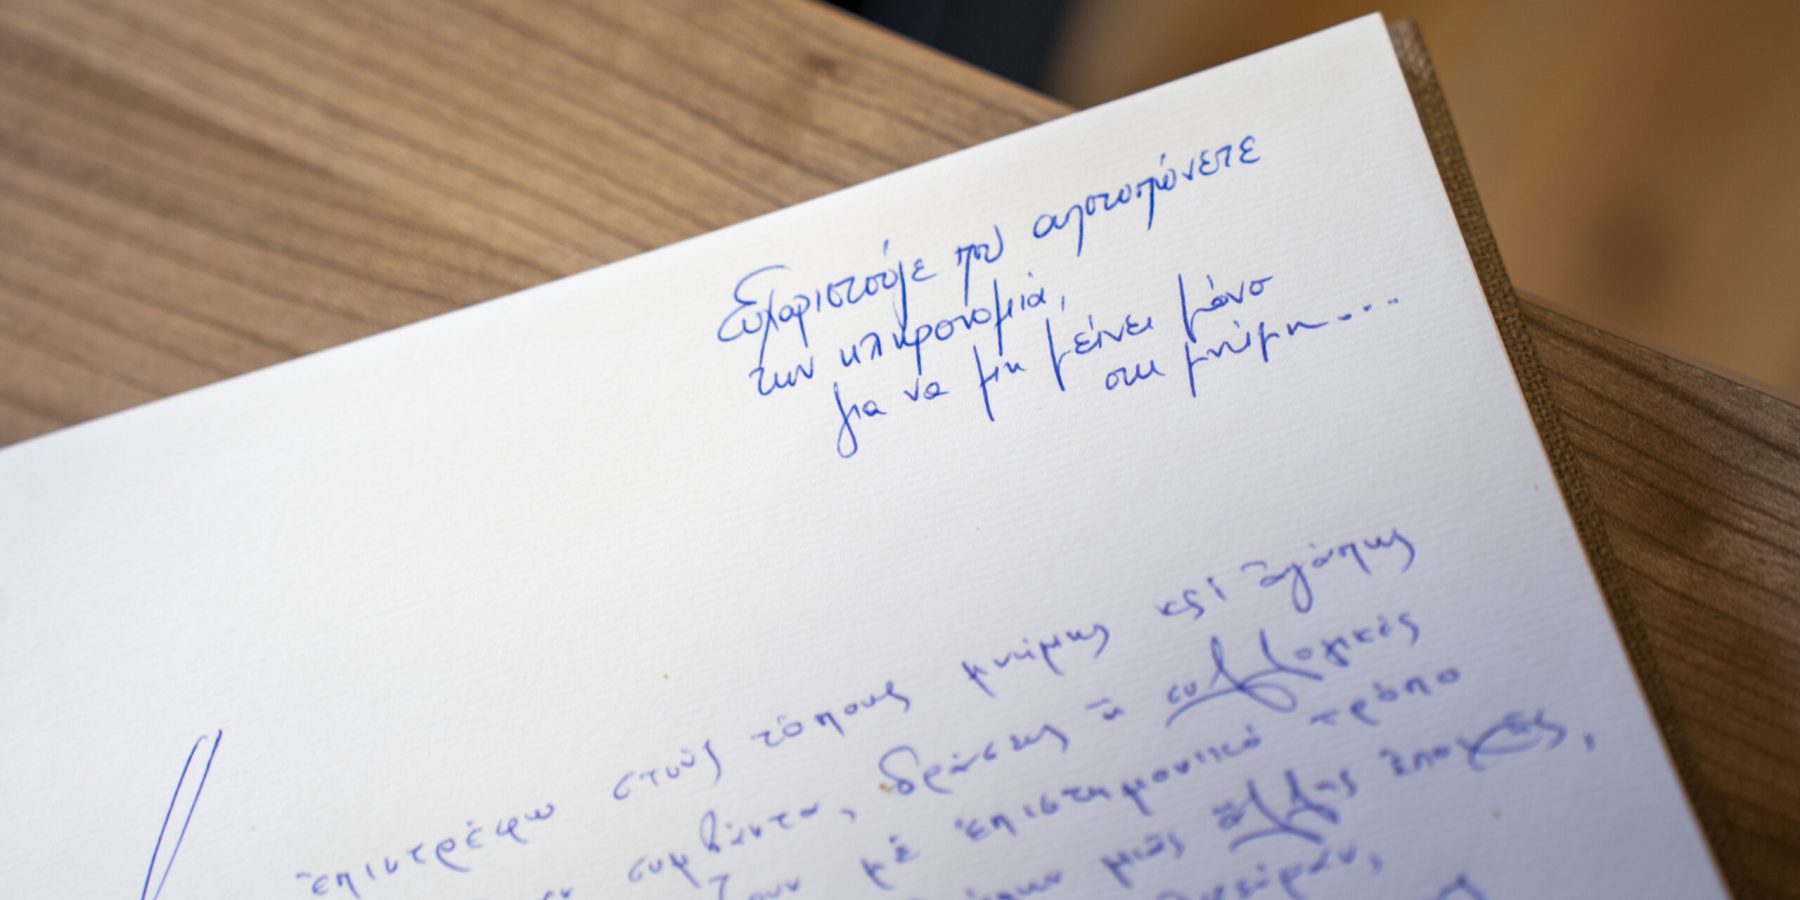 Ευχαριστούμε που αποτυπώνετε
την κληρονομιά,
για να μη μείνει μόνο
στη μνήμη...
ἐπιστρέφω στοὺς τόπους μνήμης καὶ ἀγάπης
συμβάντα, δράσεις ἢ συλλογικές
μὲ ἐπιστημονικό τρόπο
μιᾶς ἄλλης ἐποχῆς,